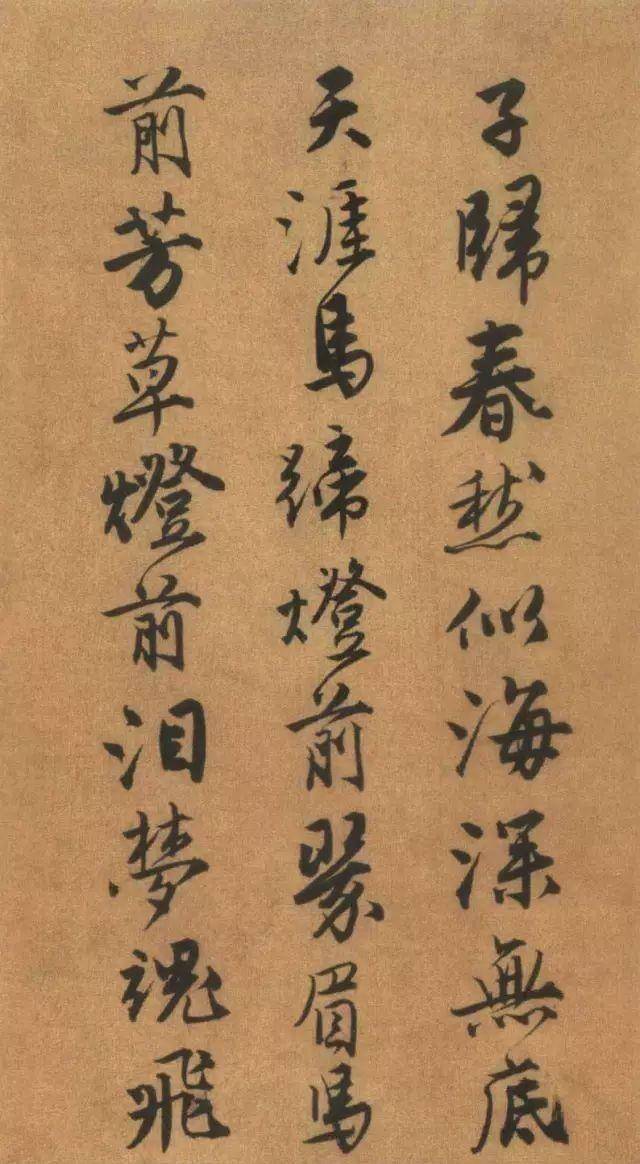 子歸春愁似海深無底
天涯馬蹄燈前翠眉馬
前芳草燈前淚夢魂飛